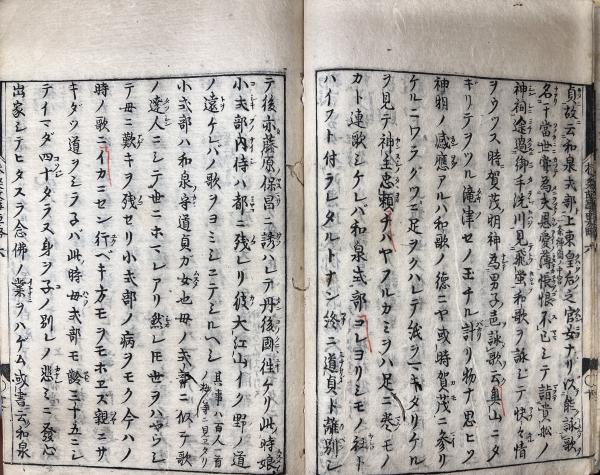 貞故云和泉式部上東皇后之官女ナリ以能詠歌
名于當世嘗為夫恩愛薄悵恨不已シテ詣貴船ノ
神祠逾過御手洗川見飛蛍和歌ヲ詠シテ快々情
ヲウツス時賀茂明神為男子㒵詠歌云奥山ニタ
ギリテヲツル滝津セノ玉チル計リ物ナ思ヒソ
神明ノ感應アルハ和歌ノ徳ニヤ或時賀茂ニ参リ
ケルニワラグツニ足ヲクハレテ紙ヲマキタリケル
ヲ見テ神主忠頼チハヤフルカミヲハ足ニ巻モノ
カト連歌シケレバ和泉式部コレヨリシモノ社ト
ハイフト付ラレタルトナン終ニ道貞ト離別シ
テ後亦藤原保昌ニ誘ハレテ丹後國往ケリ此時娘
小式部内侍ハ都ニ残レリ彼大江山イク野ノ道
ノ遠ケレバノ歌ヲヨミシニテシルヘシ 其事ハ百人一首
小式部ハ和泉守道貞カ女也母ノ式部ニ似テ歌
ノ達人ニシテ世ニホマレアリ然レ𪜈世ヲハヤウシ
テ母ニ歎キヲ残セリ小式部ノ病ヲモク今ハノ
時ノ歌ニイカニセン行ベキ方モヲモホエズ親ニサ
キダツ道ヲシラネバ此時母式部モ齢三十五ニシ
テイマダ四十ニタラヌ身ヲ子ノ別レノ悲ミニ發心
出家シテヒタスラ念佛ノ業ヲハゲム或書云和泉